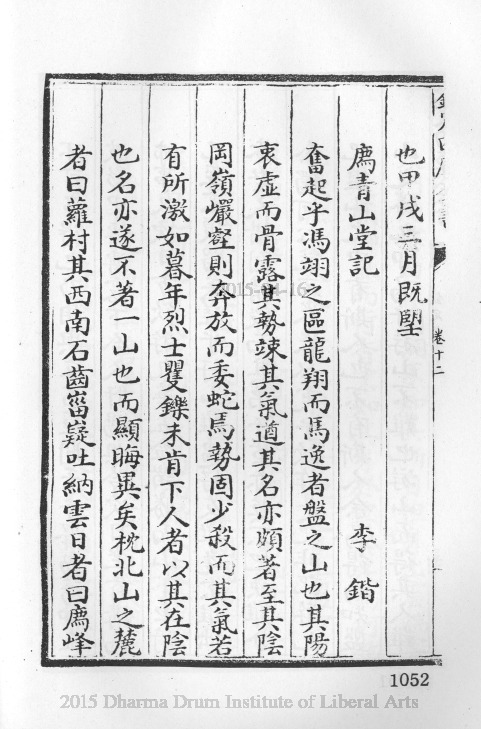 也甲戌三月既望
廌青山堂記
李鍇
奮起乎馮翊之區龍翔而馬逸者盤之山也其陽
衷虛而骨露其勢竦其氣遒其名亦頗著至其陰
岡嶺巖壑則奔放而委蛇焉勢固少殺而其氣若
有所激如暮年烈士矍鑠未肯下人者以其在陰
也名亦遂不著一山也而顯晦異矣枕北山之麓
者曰蘿村其西南石齒崒嶷吐納雲日者曰廌峰
卷十二
2015-01-16
1052
2015 Dharma Drum Institute of Liberal Arts